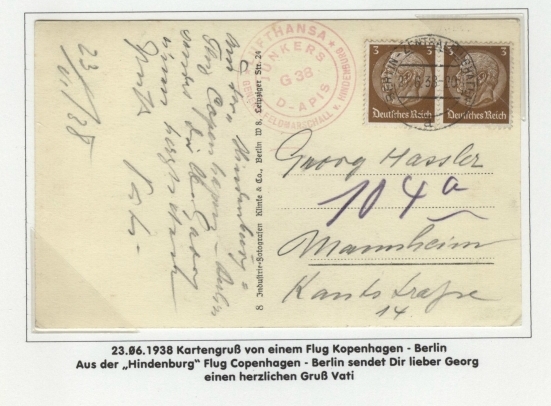 23/VI.38
Aus der „Hindenburg"
Flug Copenhagen - Berlin
sendet dir l. Georg
einen herzlichen
Gruß Vati
8 Industrie-Fotografen Klinke & Co., Berlin W 8, Leipziger Str. 24
LUFTHANSA
JUNKERS
G 38
D-APIS
FELDMARSCHALL v. HINDENBURG
3
3
Deutsches Reich
Deutsches Reich
BERLIN-ZENTRALFLUGHAFEN
Georg Hassler
104a
Mannheim
Kantstraße
14
23.06.1938 Kartengruß von einem Flug Kopenhagen - Berlin
Aus der „Hindenburg" Flug Copenhagen - Berlin sendet Dir lieber Georg
einen herzlichen Gruß Vati